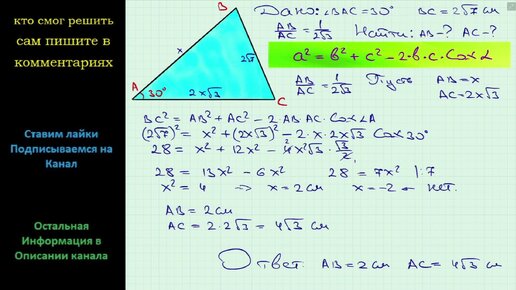 кто смог решить
сам пишите в
комментариях
Ставим лайки
Подписываемся на
Канал
Остальная
Информация в
Описании канала
B
x
2√7
A
30°
2x√3
C
Дано: ∠BAC = 30° BC = 2√7 см
AB/AC = 1/2√3 Найти: AB-? AC-?
a² = b² + c² - 2·b·c·Cosα
AB/AC = 1/2√3 Пусть AB = x
AC = 2x√3
BC² = AB² + AC² - 2 AB·AC·Cos∠A
(2√7)² = x² + (2x√3)² - 2·x·2x√3 Cos30°
28 = x² + 12x² - 4x²√3 · √3/2
28 = 13x² - 6x² 28 = 7x² |:7
x² = 4 ⇒ x = 2 см x = -2 - нет.
AB = 2 см
AC = 2·2√3 = 4√3 см
Ответ: AB = 2 см AC = 4√3 см